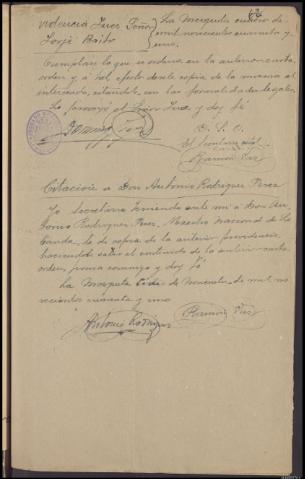 videncia Juez Señor
Jorje Brito
La Mezquita cuatro de
mil novecientos cuarenta y
uno.
Cumplase lo que se ordena en la anterior carta
orden y al efecto dese copia de la misma al
interesado, citandole con las formalidades legales.
Lo firmó el Señor Juez y doy fé
D. S. O.
El Secretario
Ramón Paz
Citación a Don Antonio Rodriguez Perez
Yo Secretario teniendo ante mi a Don An-
tonio Rodriguez Perez, Maestro Nacional de La
Canda, le di copia de la anterior providencia,
haciendole saber el contenido de la anterior carta
orden, firma conmigo y doy fé
La Mezquita de mil no
vecientos cuarenta y uno
Antonio Rodriguez
Ramón Paz